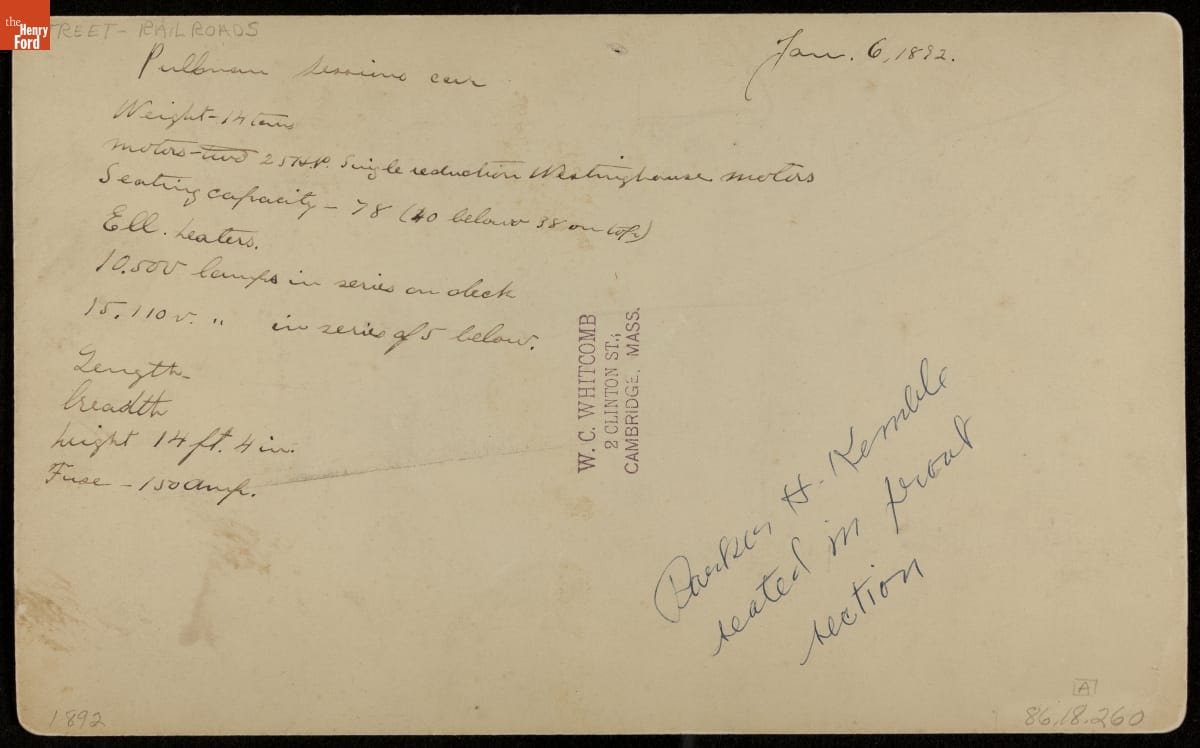 the
Henry
Ford
TREET-RAILROADS
Jan. 6, 1892.
Pullman Sessions car
Weight-14 tons
motors-two 25 H.P. Single reduction Westinghouse motors
Seating capacity - 78 (40 below 38 on top)
Ell. heaters.
10.500 lamps in series on deck
15.110 v. " in series of 5 below.
Length-
breadth
height 14 ft. 4 in.
Fuse - 150 amp.
W. C. WHITCOMB
2 CLINTON ST.,
CAMBRIDGE, MASS.
Parker H. Kemble
seated in front
section
1892
A
86.18.260